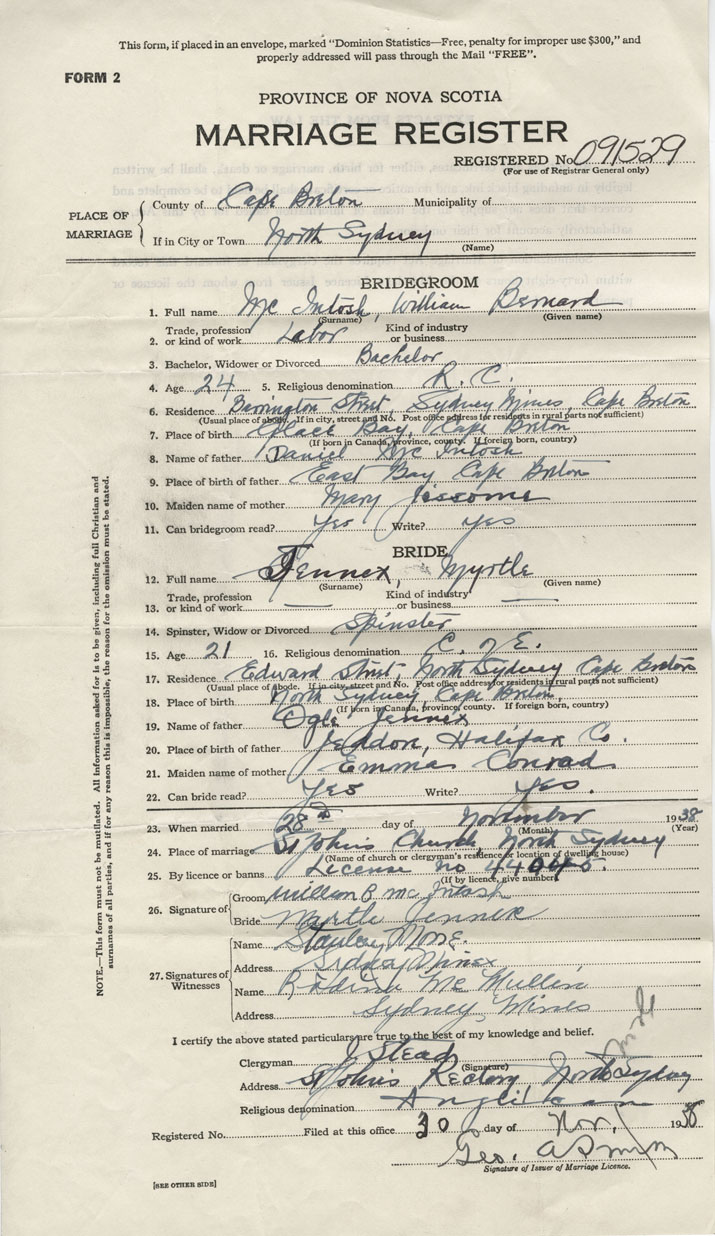 This form, if placed in an envelope, marked "Dominion Statistics—Free, penalty for improper use $300," and
properly addressed will pass through the Mail "FREE".
FORM 2
PROVINCE OF NOVA SCOTIA
MARRIAGE REGISTER
REGISTERED No. 091529
(For use of Registrar General only)
PLACE OF MARRIAGE
County of Cape Breton Municipality of
If in City or Town North Sydney
(Name)
BRIDEGROOM
1. Full name Mc Intosh, William Bernard
(Surname) (Given name)
2. Trade, profession or kind of work Labor Kind of industry or business
3. Bachelor, Widower or Divorced Bachelor
4. Age 24 5. Religious denomination R. C.
6. Residence Barrington Street, Sydney Mines, Cape Breton
(Usual place of abode. If in city, street and No. Post office address for residents in rural parts not sufficient)
7. Place of birth Glace Bay, Cape Breton
(If born in Canada, province, county. If foreign born, country)
8. Name of father Daniel Mc Intosh
9. Place of birth of father East Bay Cape Breton
10. Maiden name of mother Mary Jessome
11. Can bridegroom read? Yes Write? Yes
BRIDE
12. Full name Jennex, Myrtle
(Surname) (Given name)
13. Trade, profession or kind of work — Kind of industry or business —
14. Spinster, Widow or Divorced Spinster
15. Age 21 16. Religious denomination C. of E.
17. Residence Edward Street, North Sydney Cape Breton
(Usual place of abode. If in city, street and No. Post office address for residents in rural parts not sufficient)
18. Place of birth North Sydney Cape Breton
(If born in Canada, province, county. If foreign born, country)
19. Name of father Ogle Jennex
20. Place of birth of father Jeddon, Halifax Co.
21. Maiden name of mother Emma Conrad
22. Can bride read? Yes Write? Yes.
23. When married 28th day of November 1938
(Month) (Year)
24. Place of marriage St John's Church, North Sydney
(Name of church or clergyman's residence or location of dwelling house)
25. By licence or banns License no 44045.
(If by licence, give number)
26. Signature of
Groom William B Mc Intosh
Bride Myrtle Jennex
27. Signatures of Witnesses
Name Stanley
Address Sydney Mines
Name Mc Mullin
Address Sydney Mines
I certify the above stated particulars are true to the best of my knowledge and belief.
Clergyman J. Stead
(Signature)
Address St John's Rectory, North Sydney
Religious denomination Anglican
Registered No. Filed at this office 30 day of Nov. 1938
Geo.
Signature of Issuer of Marriage Licence.
[SEE OTHER SIDE]
NOTE.—This form must not be mutilated. All information asked for is to be given, including full Christian and
surnames of all parties, and if for any reason this is impossible, the reason for the omission must be stated.